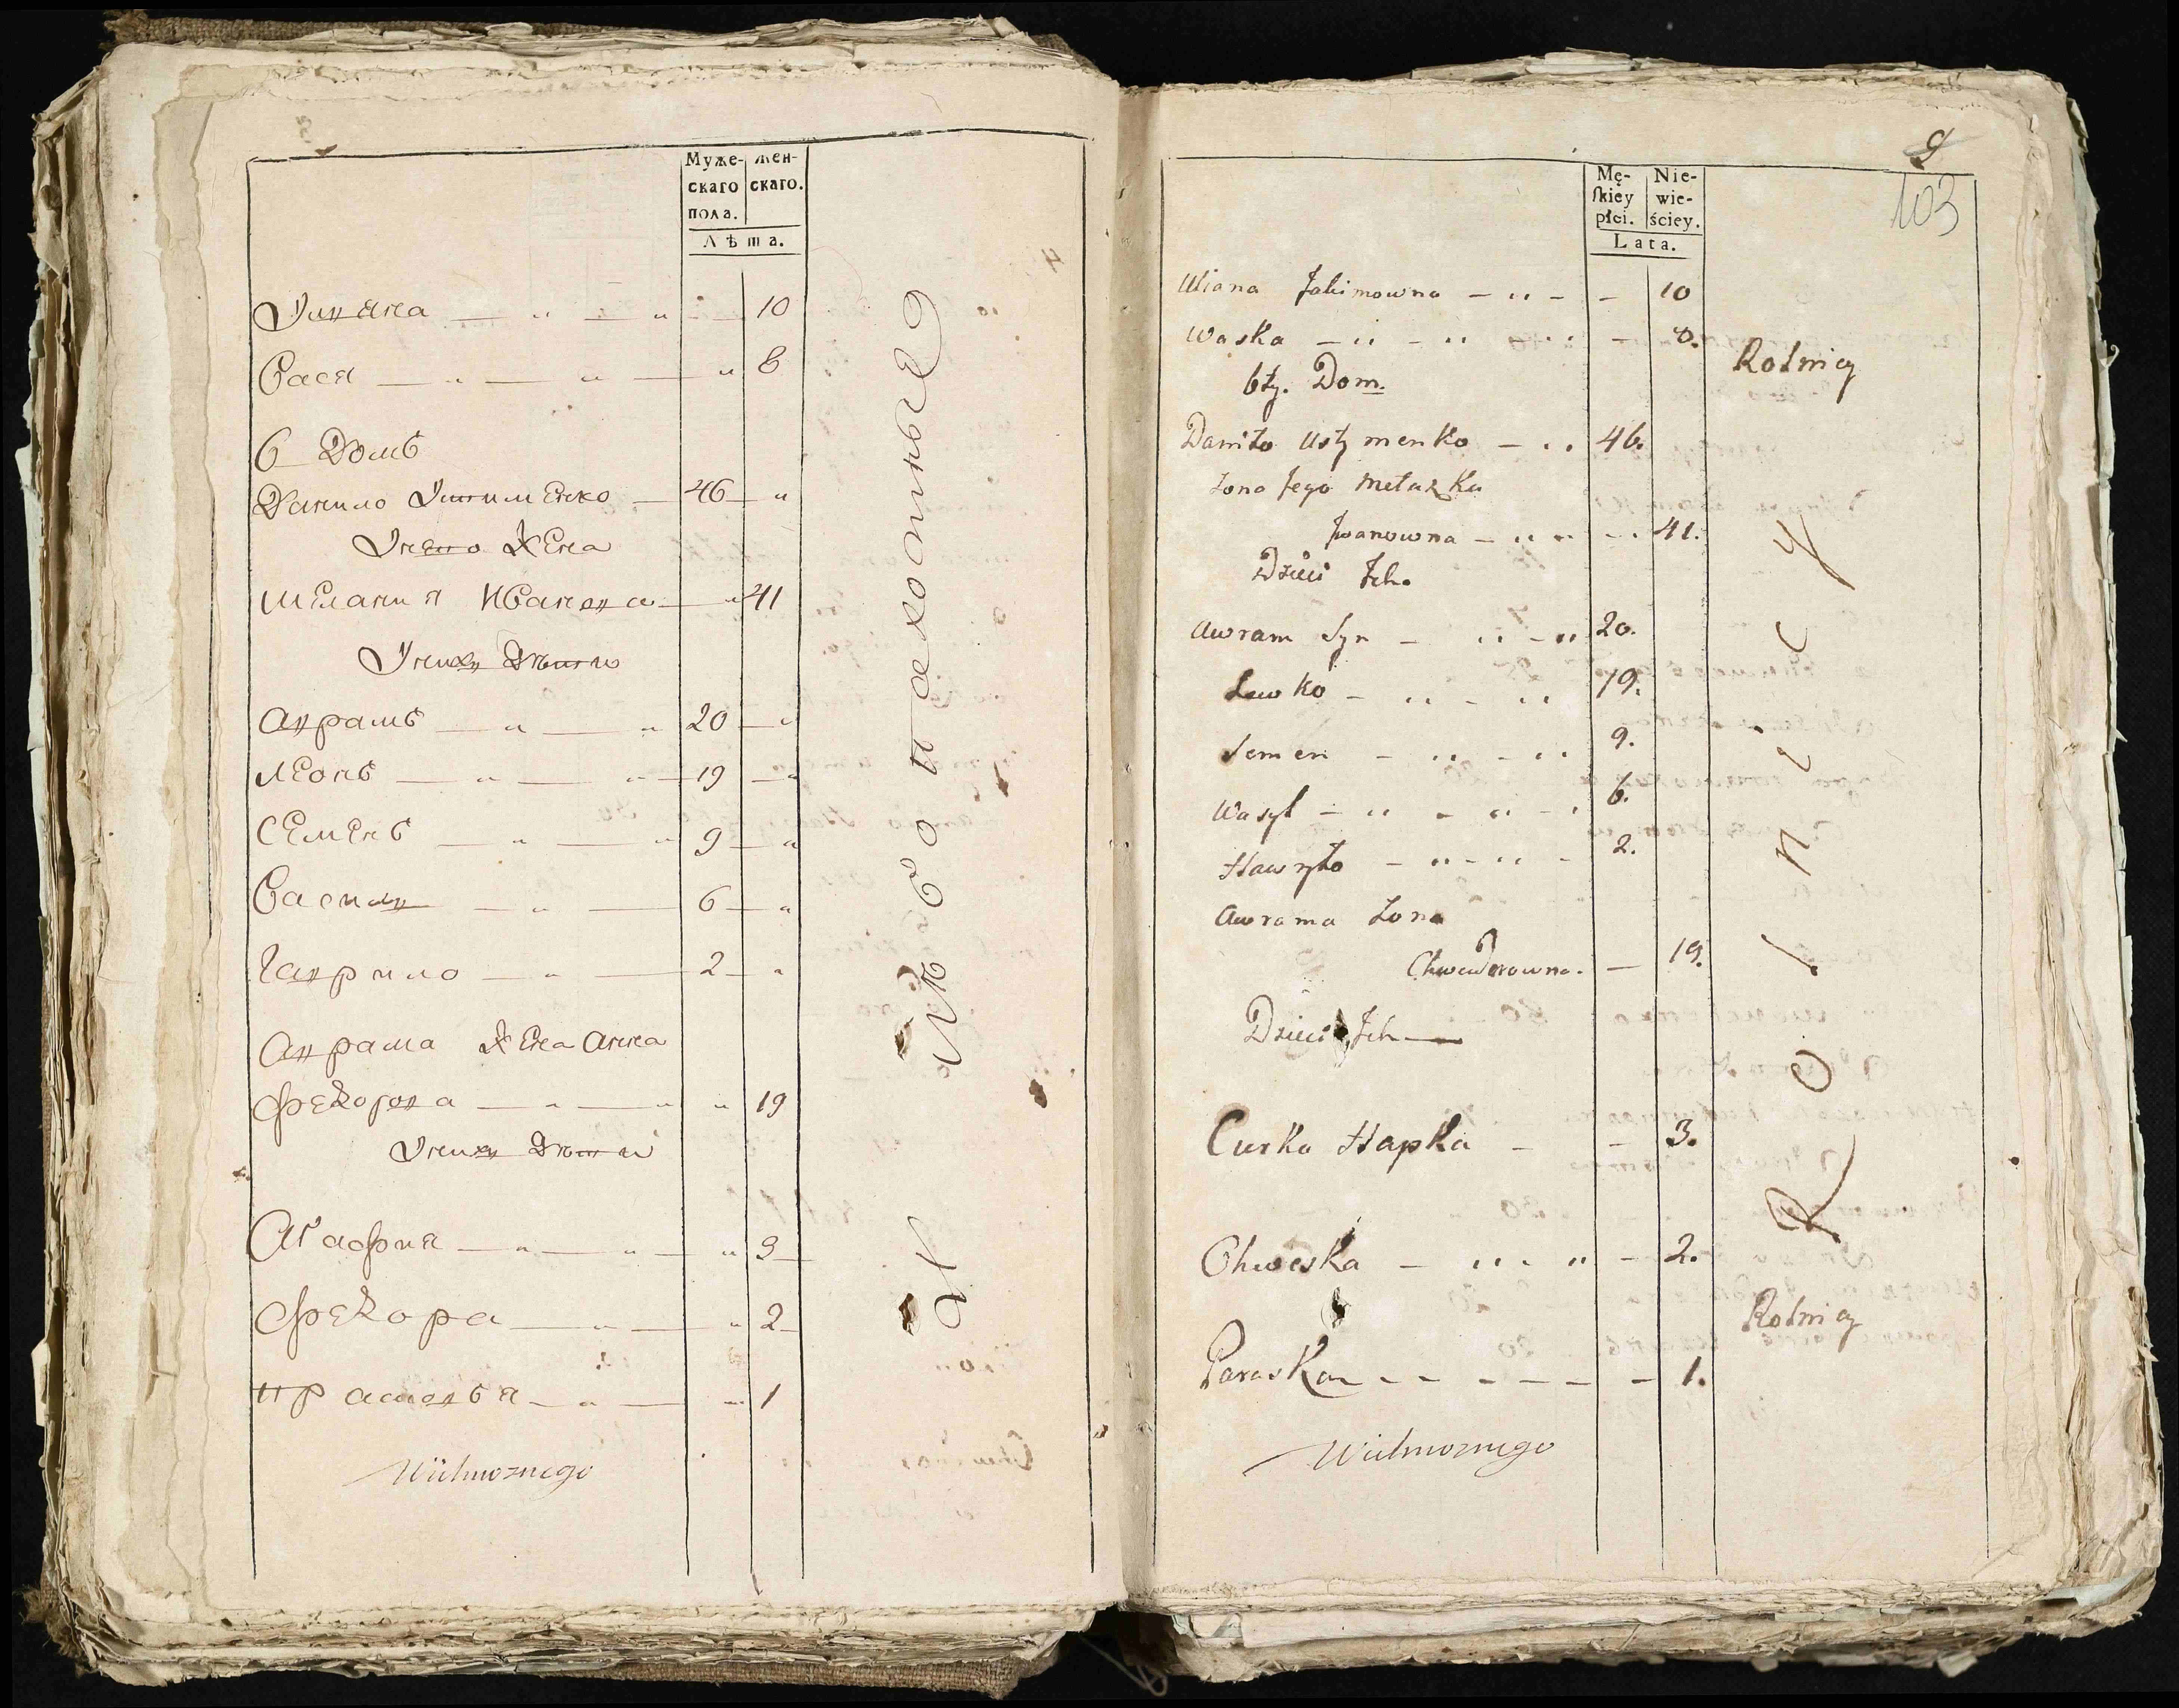 Муже-
скаго
пола.
жен-
скаго.
Лѣта.
Улияна — „ — „ — 10
Вася — „ — „ — „ 8
6 Домъ
Данило Устименко — 46 — „
У него Жена
Мелания Иванова — „ 41
У нихъ Дѣти
Аврамъ — „ — „ 20 — „
Леонъ — „ — „ — 19 — „
Семенъ — „ — „ 9 — „
Василь — „ — 6 — „
Гаврило — „ — 2 — „
Аврама Жена Анна
Федорова — „ — „ „ 19
У нихъ Дѣти
Агафия — „ — „ — „ 3
Федора — „ — „ 2
Прасковья — „ — „ 1
Wielmoznego
9
103
Mę-
skiey
płci.
Nie-
wie-
ściey.
Lata.
Uliana Jakimowna — „ — — 10
Waska — „ — „ — „ — 8.
6ty. Dom.
Rolnicy
Daniło Ustymenko — „ 46.
Zona Jego Mełaszka
Iwanowna — „ — „ 41.
Dzieci Ich.
Awram Syn — „ — „ 20.
Lewko — „ — „ 19.
Semen — „ — „ 9.
Wasyl — „ — „ — 6.
Hawryło — „ — „ — 2.
Awrama Zona
Chwedorowna. — 19.
Dzieci Ich —
Curka Hapka — — 3.
Chweska — „ — „ — 2.
Paraska — — — — — — 1.
Rolnicy
Rolnicy
Wielmoznego